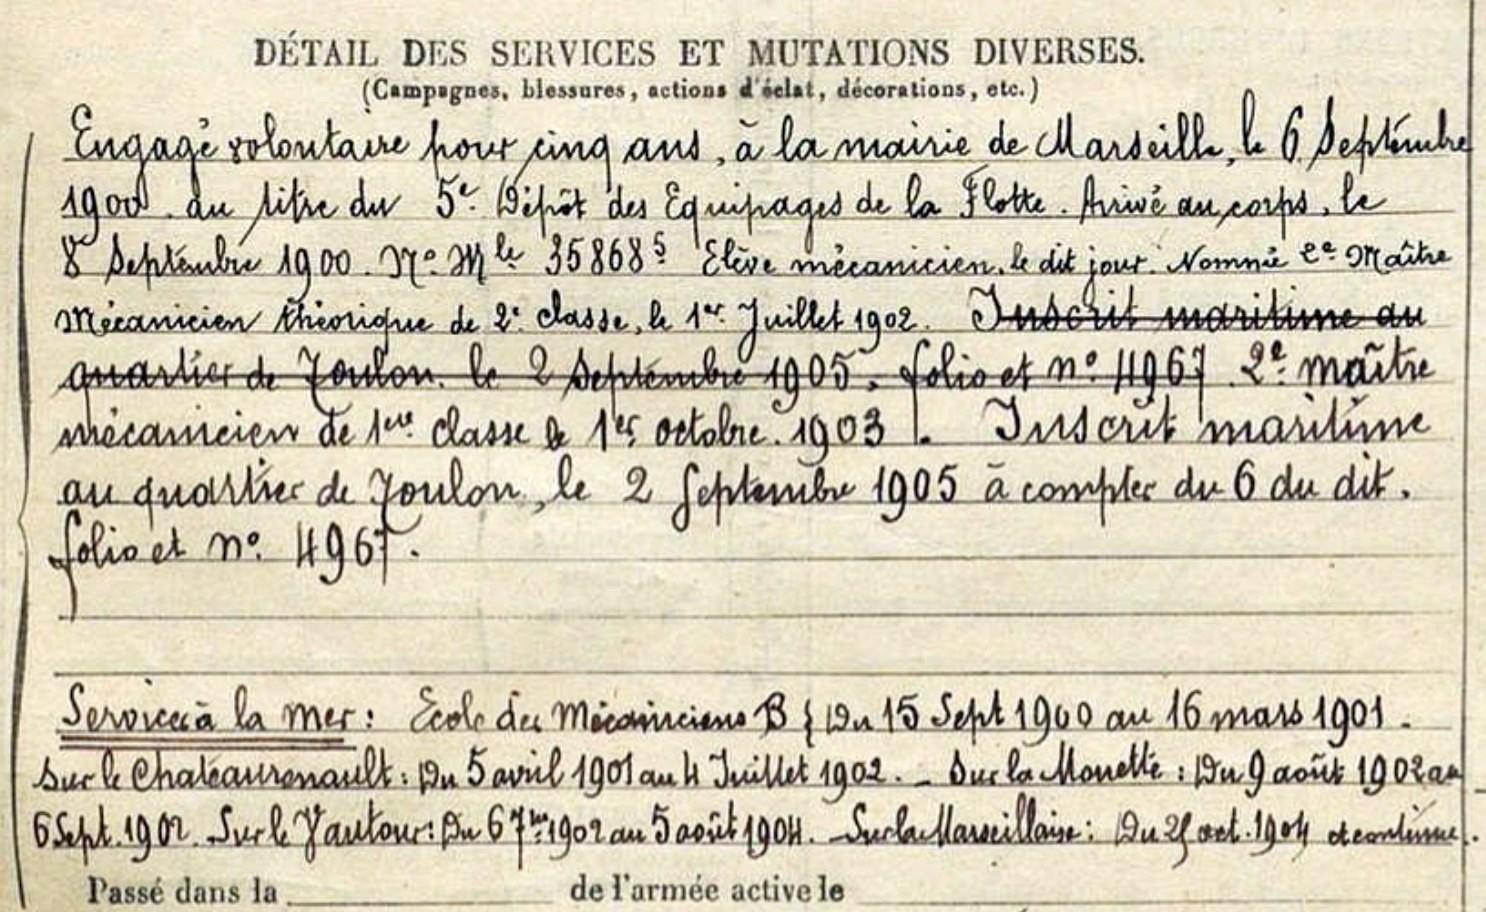 DÉTAIL DES SERVICES ET MUTATIONS DIVERSES.
(Campagnes, blessures, actions d'éclat, décorations, etc.)
Engagé volontaire pour cinq ans, à la mairie de Marseille, le 6 Septembre
1900 au titre du 5e Dépôt des Equipages de la Flotte. Arrivé au corps, le
8 Septembre 1900. No Mle 35868 5 Elève mécanicien, le dit jour. Nommé 2e Maître
Mécanicien théorique de 2e classe, le 1er Juillet 1902. Inscrit maritime au
quartier de Toulon. le 2 Septembre 1905. folio et no 4967 2e maître
mécanicien de 1ere classe le 1er octobre 1903. Inscrit maritime
au quartier de Toulon, le 2 Septembre 1905 à compter du 6 du dit.
folio et no 4967.
Services à la mer : Ecole des Mécaniciens B { Du 15 Sept 1900 au 16 mars 1901.
Sur le Chateaurenault : Du 5 avril 1901 au 4 Juillet 1902. - Sur la Mouette : Du 9 août 1902 au
6 Sept. 1902. Sur le Vautour : Du 6 7bre 1902 au 5 août 1904. - Sur la Marseillaise : Du oct. 1904 et continue.
Passé dans la de l'armée active le